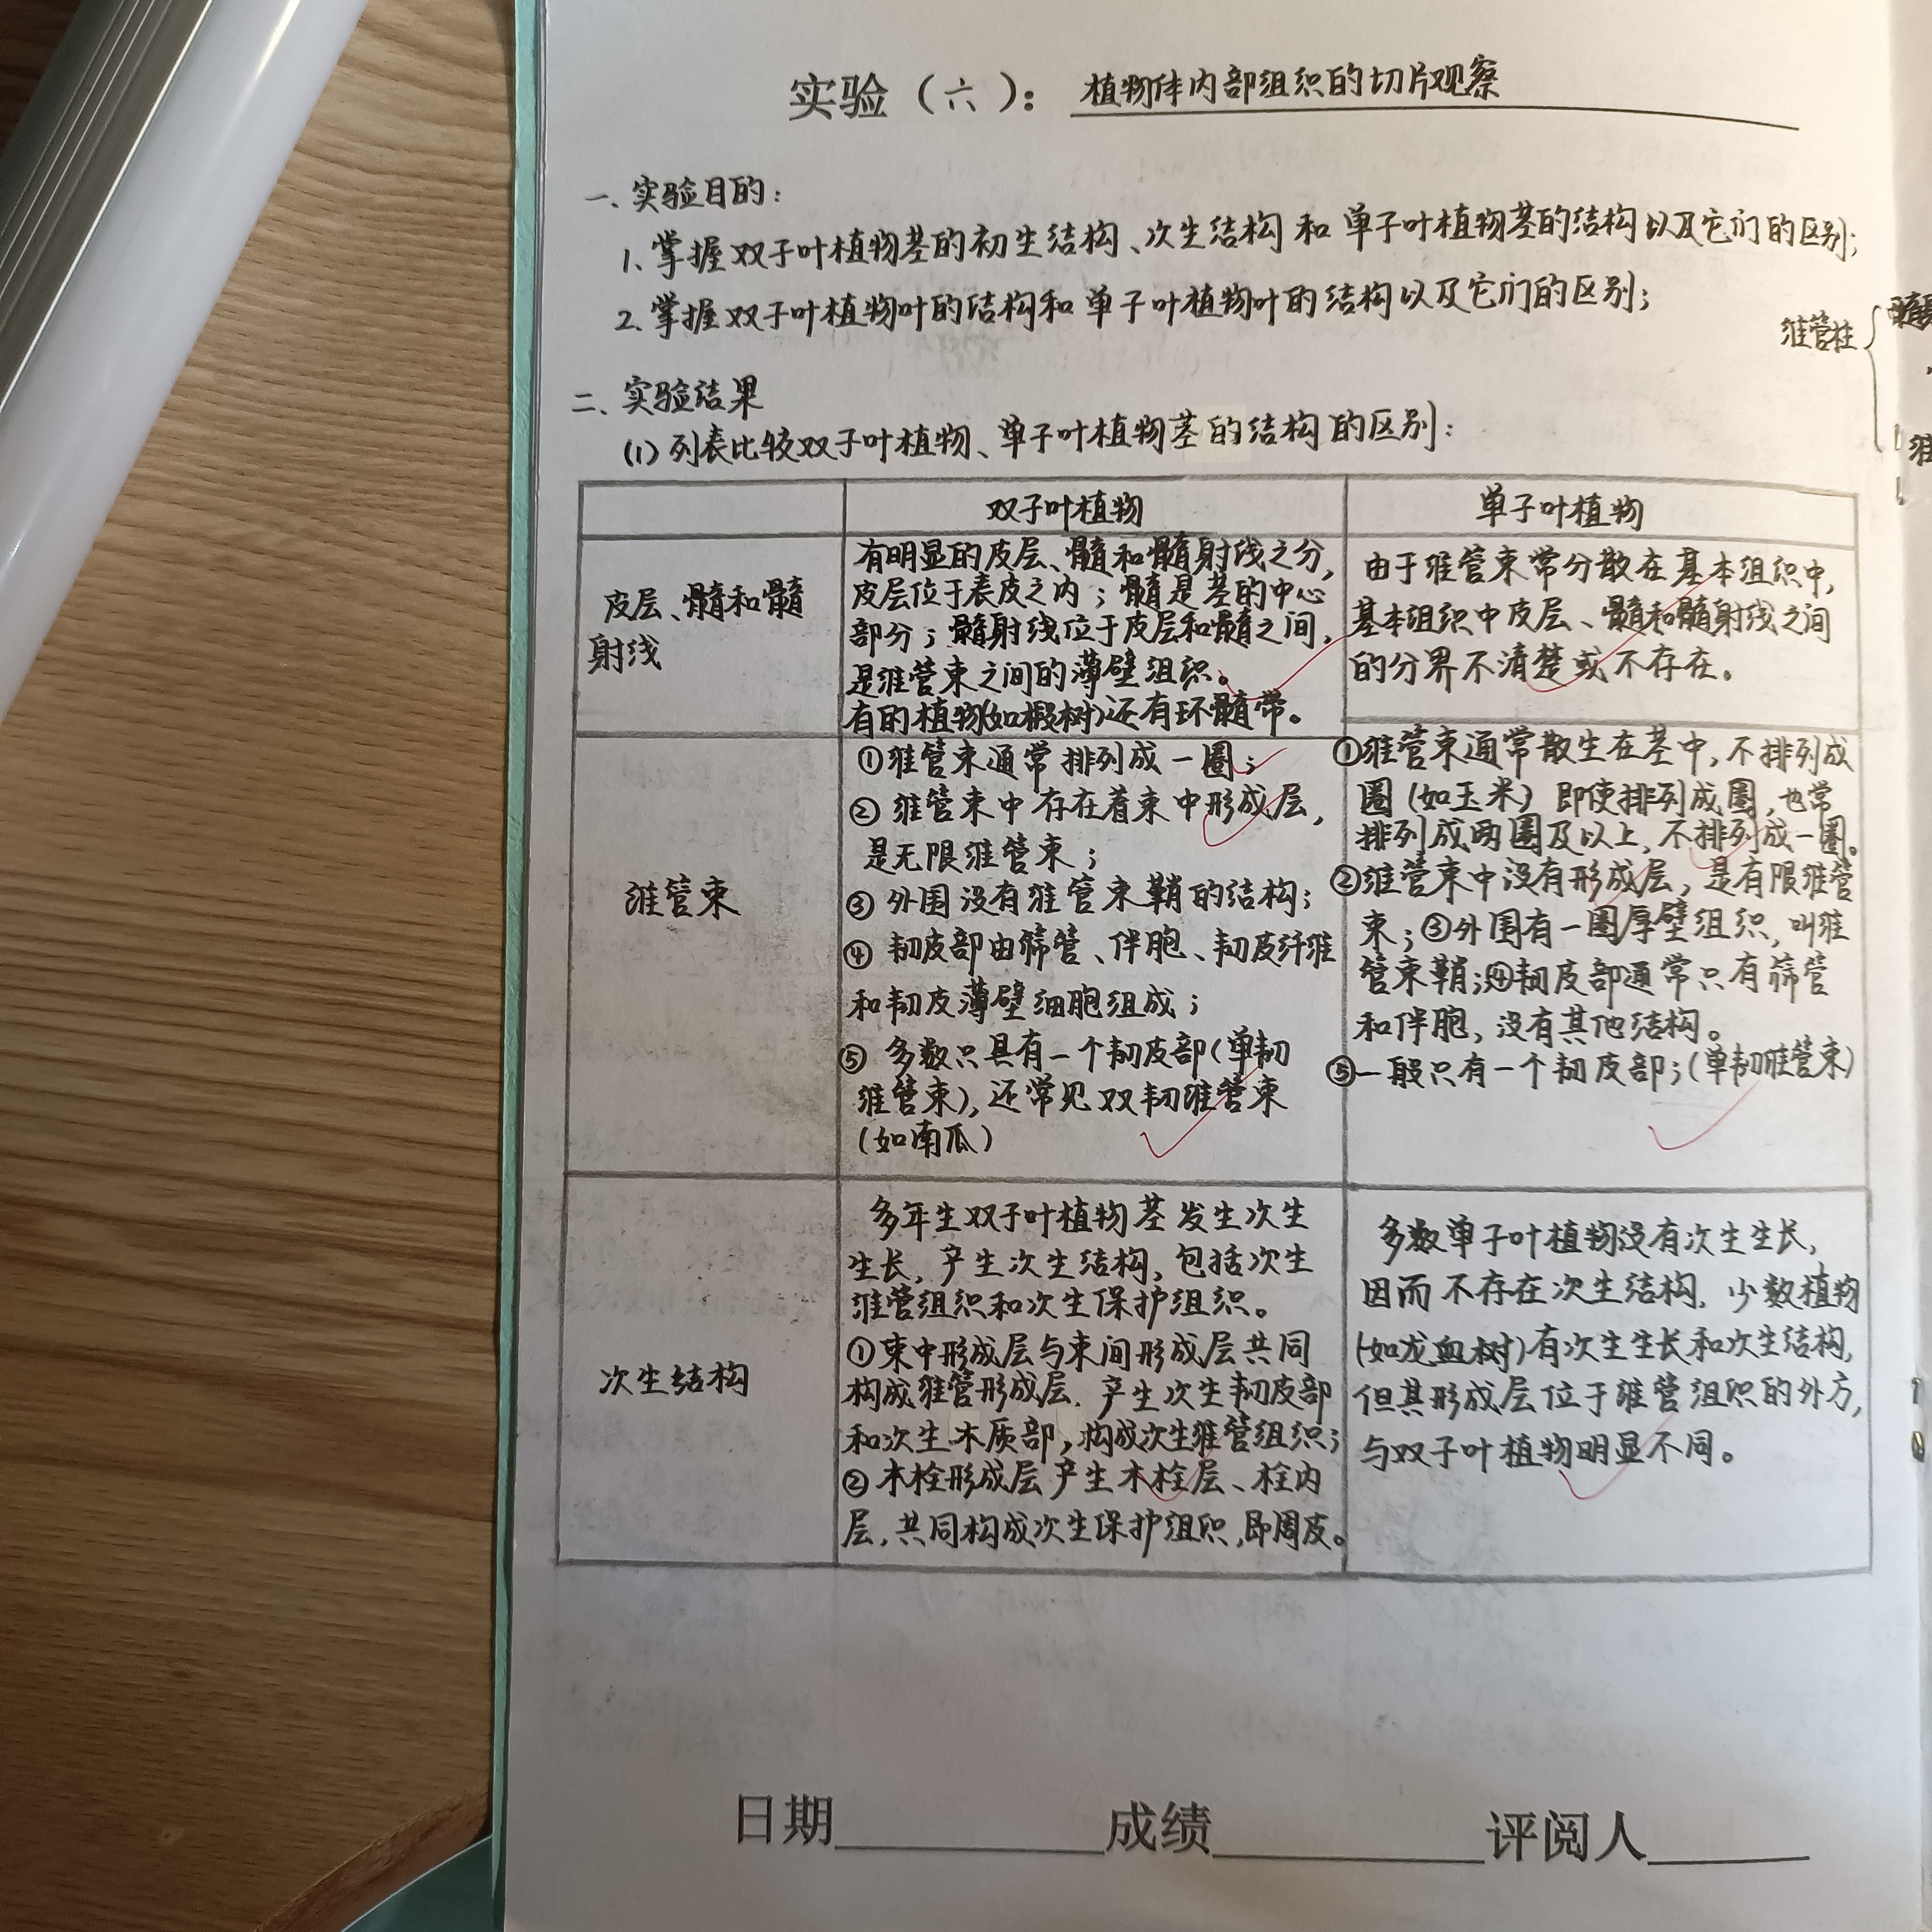 实验（六）：植物体内部组织的切片观察
一、实验目的：
1、掌握双子叶植物茎的初生结构、次生结构和单子叶植物茎的结构以及它们的区别；
2、掌握双子叶植物叶的结构和单子叶植物叶的结构以及它们的区别；
维管柱
二、实验结果
(1) 列表比较双子叶植物、单子叶植物茎的结构的区别：
双子叶植物
单子叶植物
皮层、髓和髓
射线
有明显的皮层、髓和髓射线之分，
皮层位于表皮之内；髓是茎的中心
部分；髓射线位于皮层和髓之间，
是维管束之间的薄壁组织。
有的植物(如椴树)还有环髓带。
由于维管束常分散在基本组织中，
基本组织中皮层、髓和髓射线之间
的分界不清楚或不存在。
维管束
①维管束通常排列成一圈；
②维管束中存在着束中形成层，
是无限维管束；
③外围没有维管束鞘的结构；
④韧皮部由筛管、伴胞、韧皮纤维
和韧皮薄壁细胞组成；
⑤多数只具有一个韧皮部(单韧
维管束)，还常见双韧维管束
(如南瓜)
①维管束通常散生在茎中，不排列成
圈(如玉米) 即使排列成圈，也常
排列成两圈及以上，不排列成一圈。
②维管束中没有形成层，是有限维管
束；③外围有一圈厚壁组织，叫维
管束鞘；④韧皮部通常只有筛管
和伴胞，没有其他结构。
⑤一般只有一个韧皮部；(单韧维管束)
次生结构
多年生双子叶植物茎发生次生
生长，产生次生结构，包括次生
维管组织和次生保护组织。
①束中形成层与束间形成层共同
构成维管形成层，产生次生韧皮部
和次生木质部，构成次生维管组织；
②木栓形成层产生木栓层、栓内
层，共同构成次生保护组织，即周皮。
多数单子叶植物没有次生生长，
因而不存在次生结构，少数植物
(如龙血树)有次生生长和次生结构，
但其形成层位于维管组织的外方，
与双子叶植物明显不同。
日期 成绩 评阅人